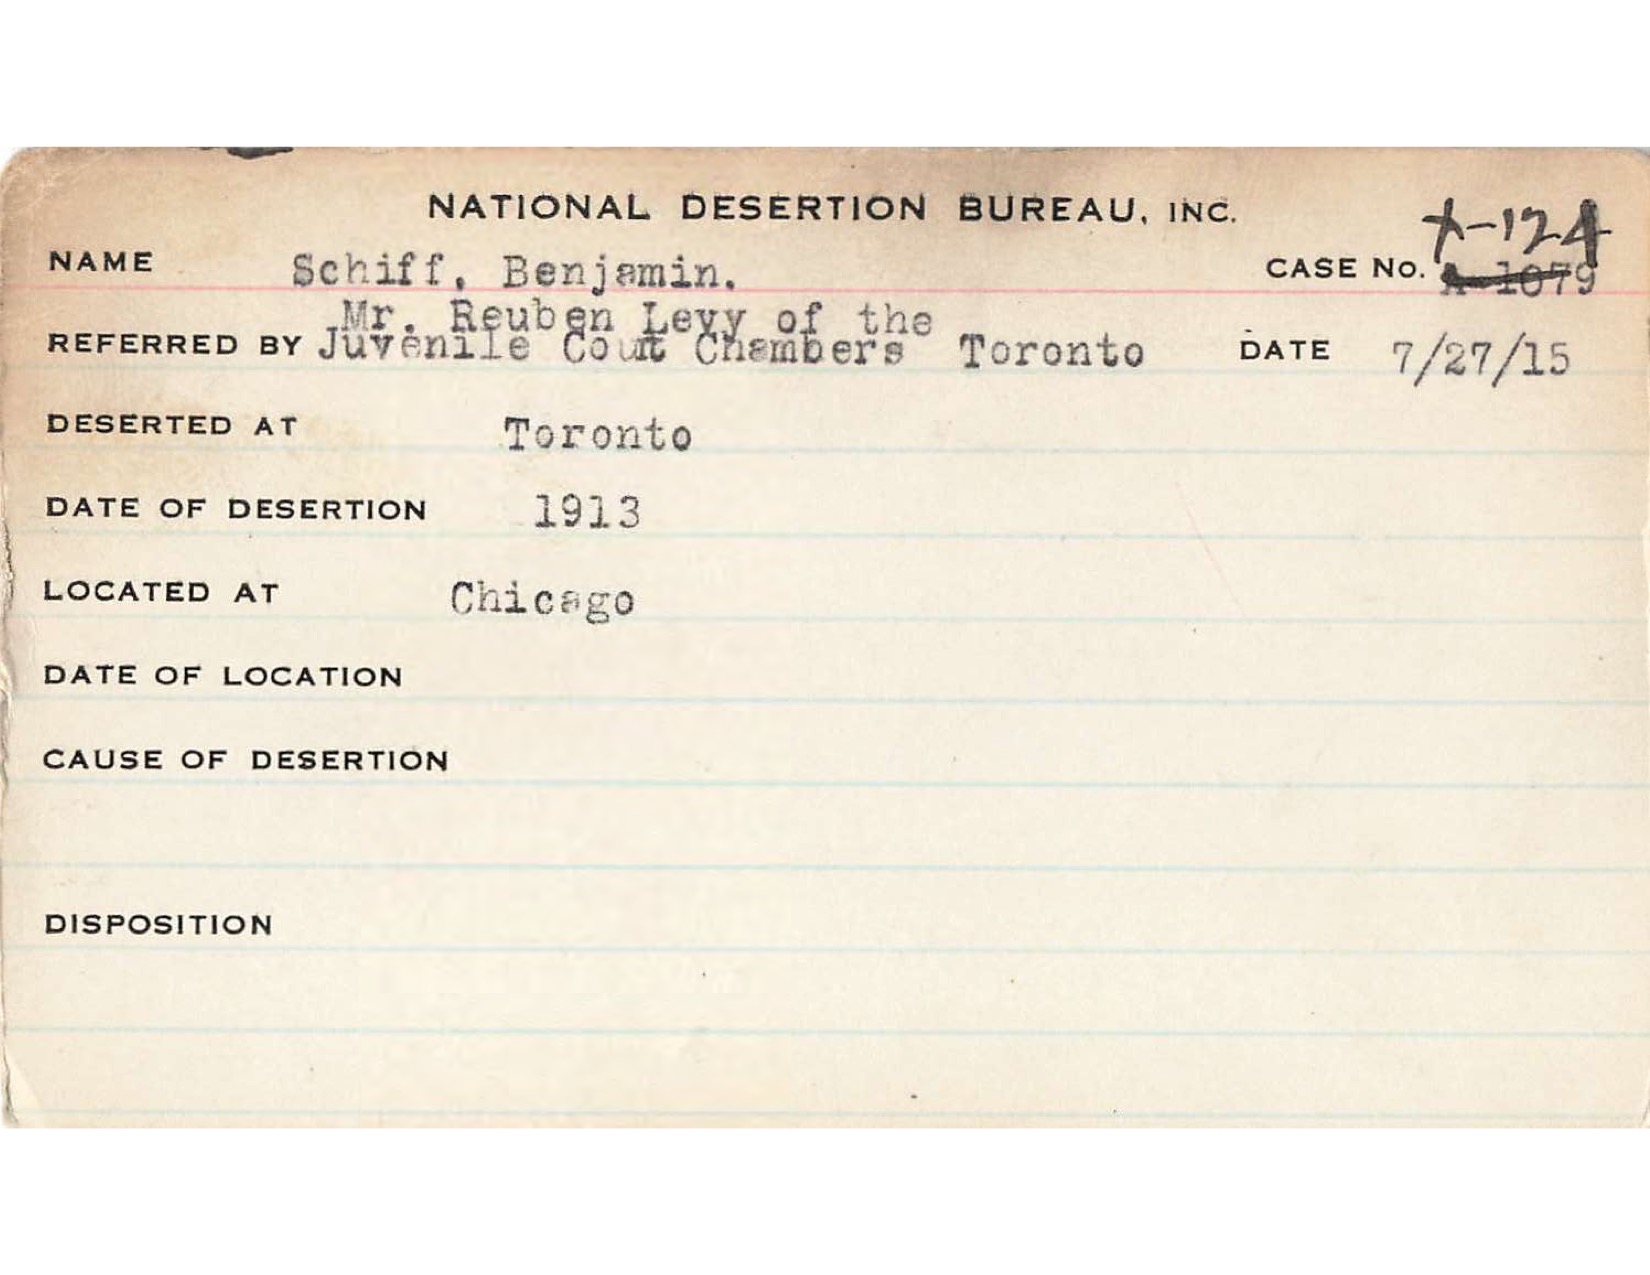 NATIONAL DESERTION BUREAU, INC.
X-124
NAME Schiff, Benjamin. CASE No. A-1079
Mr. Reuben Levy of the
REFERRED BY Juvenile Court Chambers Toronto DATE 7/27/15
DESERTED AT Toronto
DATE OF DESERTION 1913
LOCATED AT Chicago
DATE OF LOCATION
CAUSE OF DESERTION
DISPOSITION